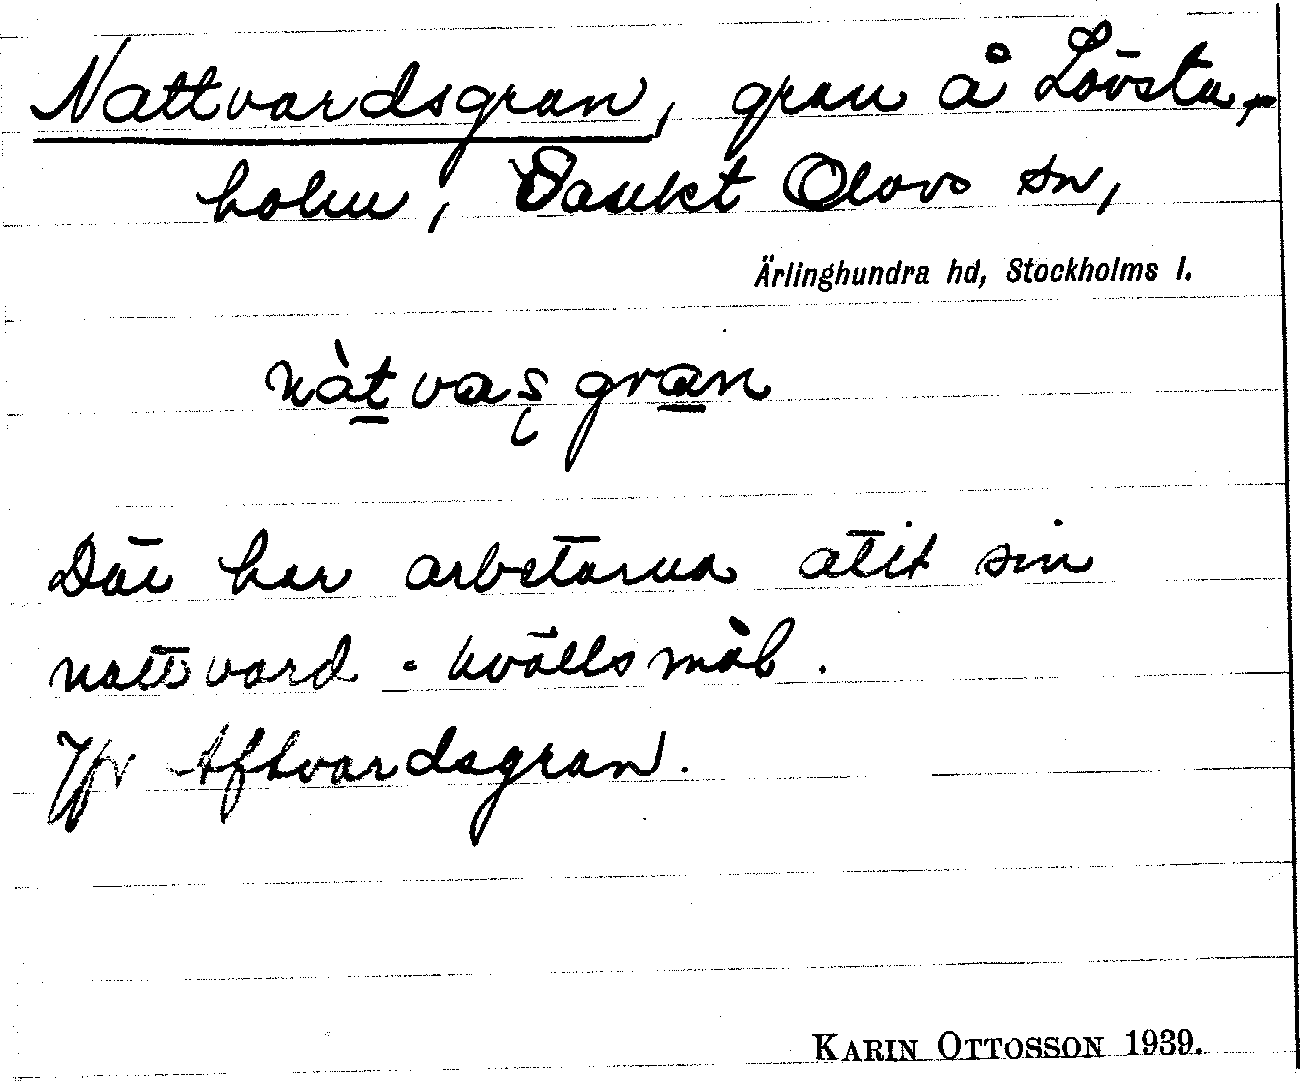 Nattvardsgran, gran å Lövsta-
holm, Sankt Olovs sn,
Ärlinghundra hd, Stockholms l.
nàt vas̨ gran
Där har arbetarna ätit sin
nattvard - kvällsmål.
Jfr Aftvardsgran.
KARIN OTTOSSON 1939.